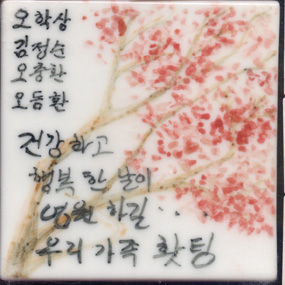 오학상
김정순
오종환
오동환
건강하고
행복한 날이
영원하길...
우리 가족 홧팅